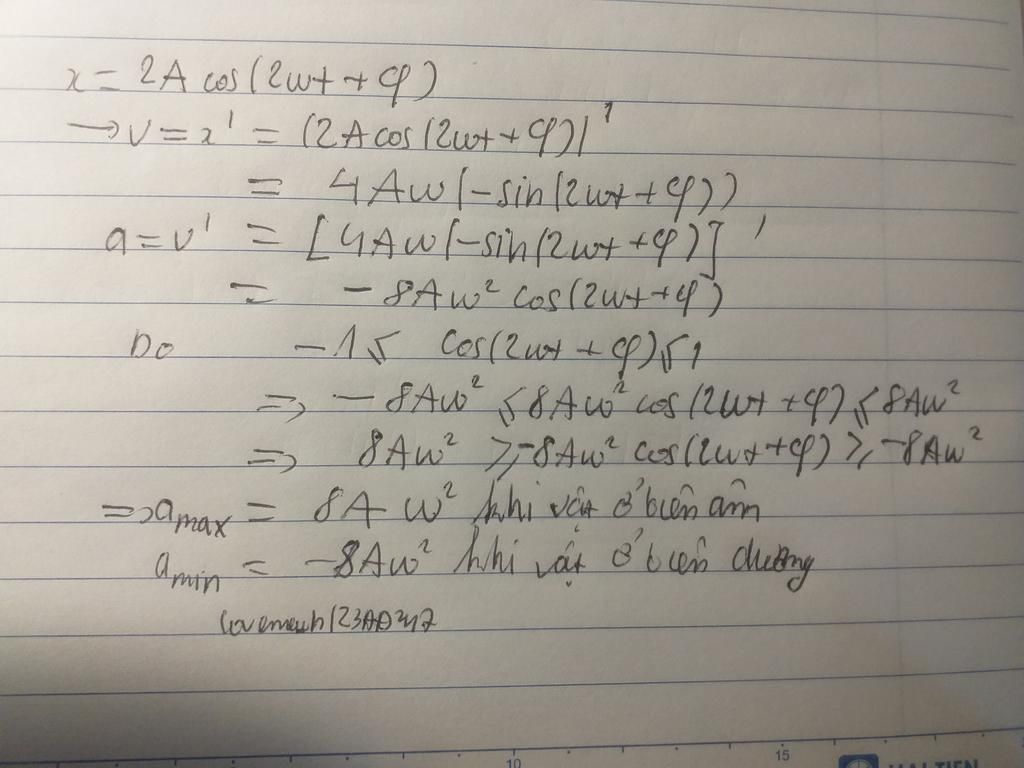 x = 2A cos(2ωt + φ)
→ v = x' = (2A cos(2ωt + φ))'
= 4Aω(-sin(2ωt + φ))
a = v' = [4Aω(-sin(2ωt + φ)]'
= -8Aω² cos(2ωt + φ)
Do -1 ≤ cos(2ωt + φ) ≤ 1
=> -8Aω² ≤ 8Aω² cos(2ωt + φ) ≤ 8Aω²
=> 8Aω² ≥ -8Aω² cos(2ωt + φ) ≥ -8Aω²
=> a max = 8Aω² khi vật ở biên âm
a min = -8Aω² khi vật ở biên dương
10 15